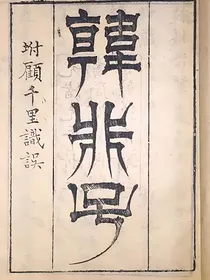 韓非子
附顧千里識誤